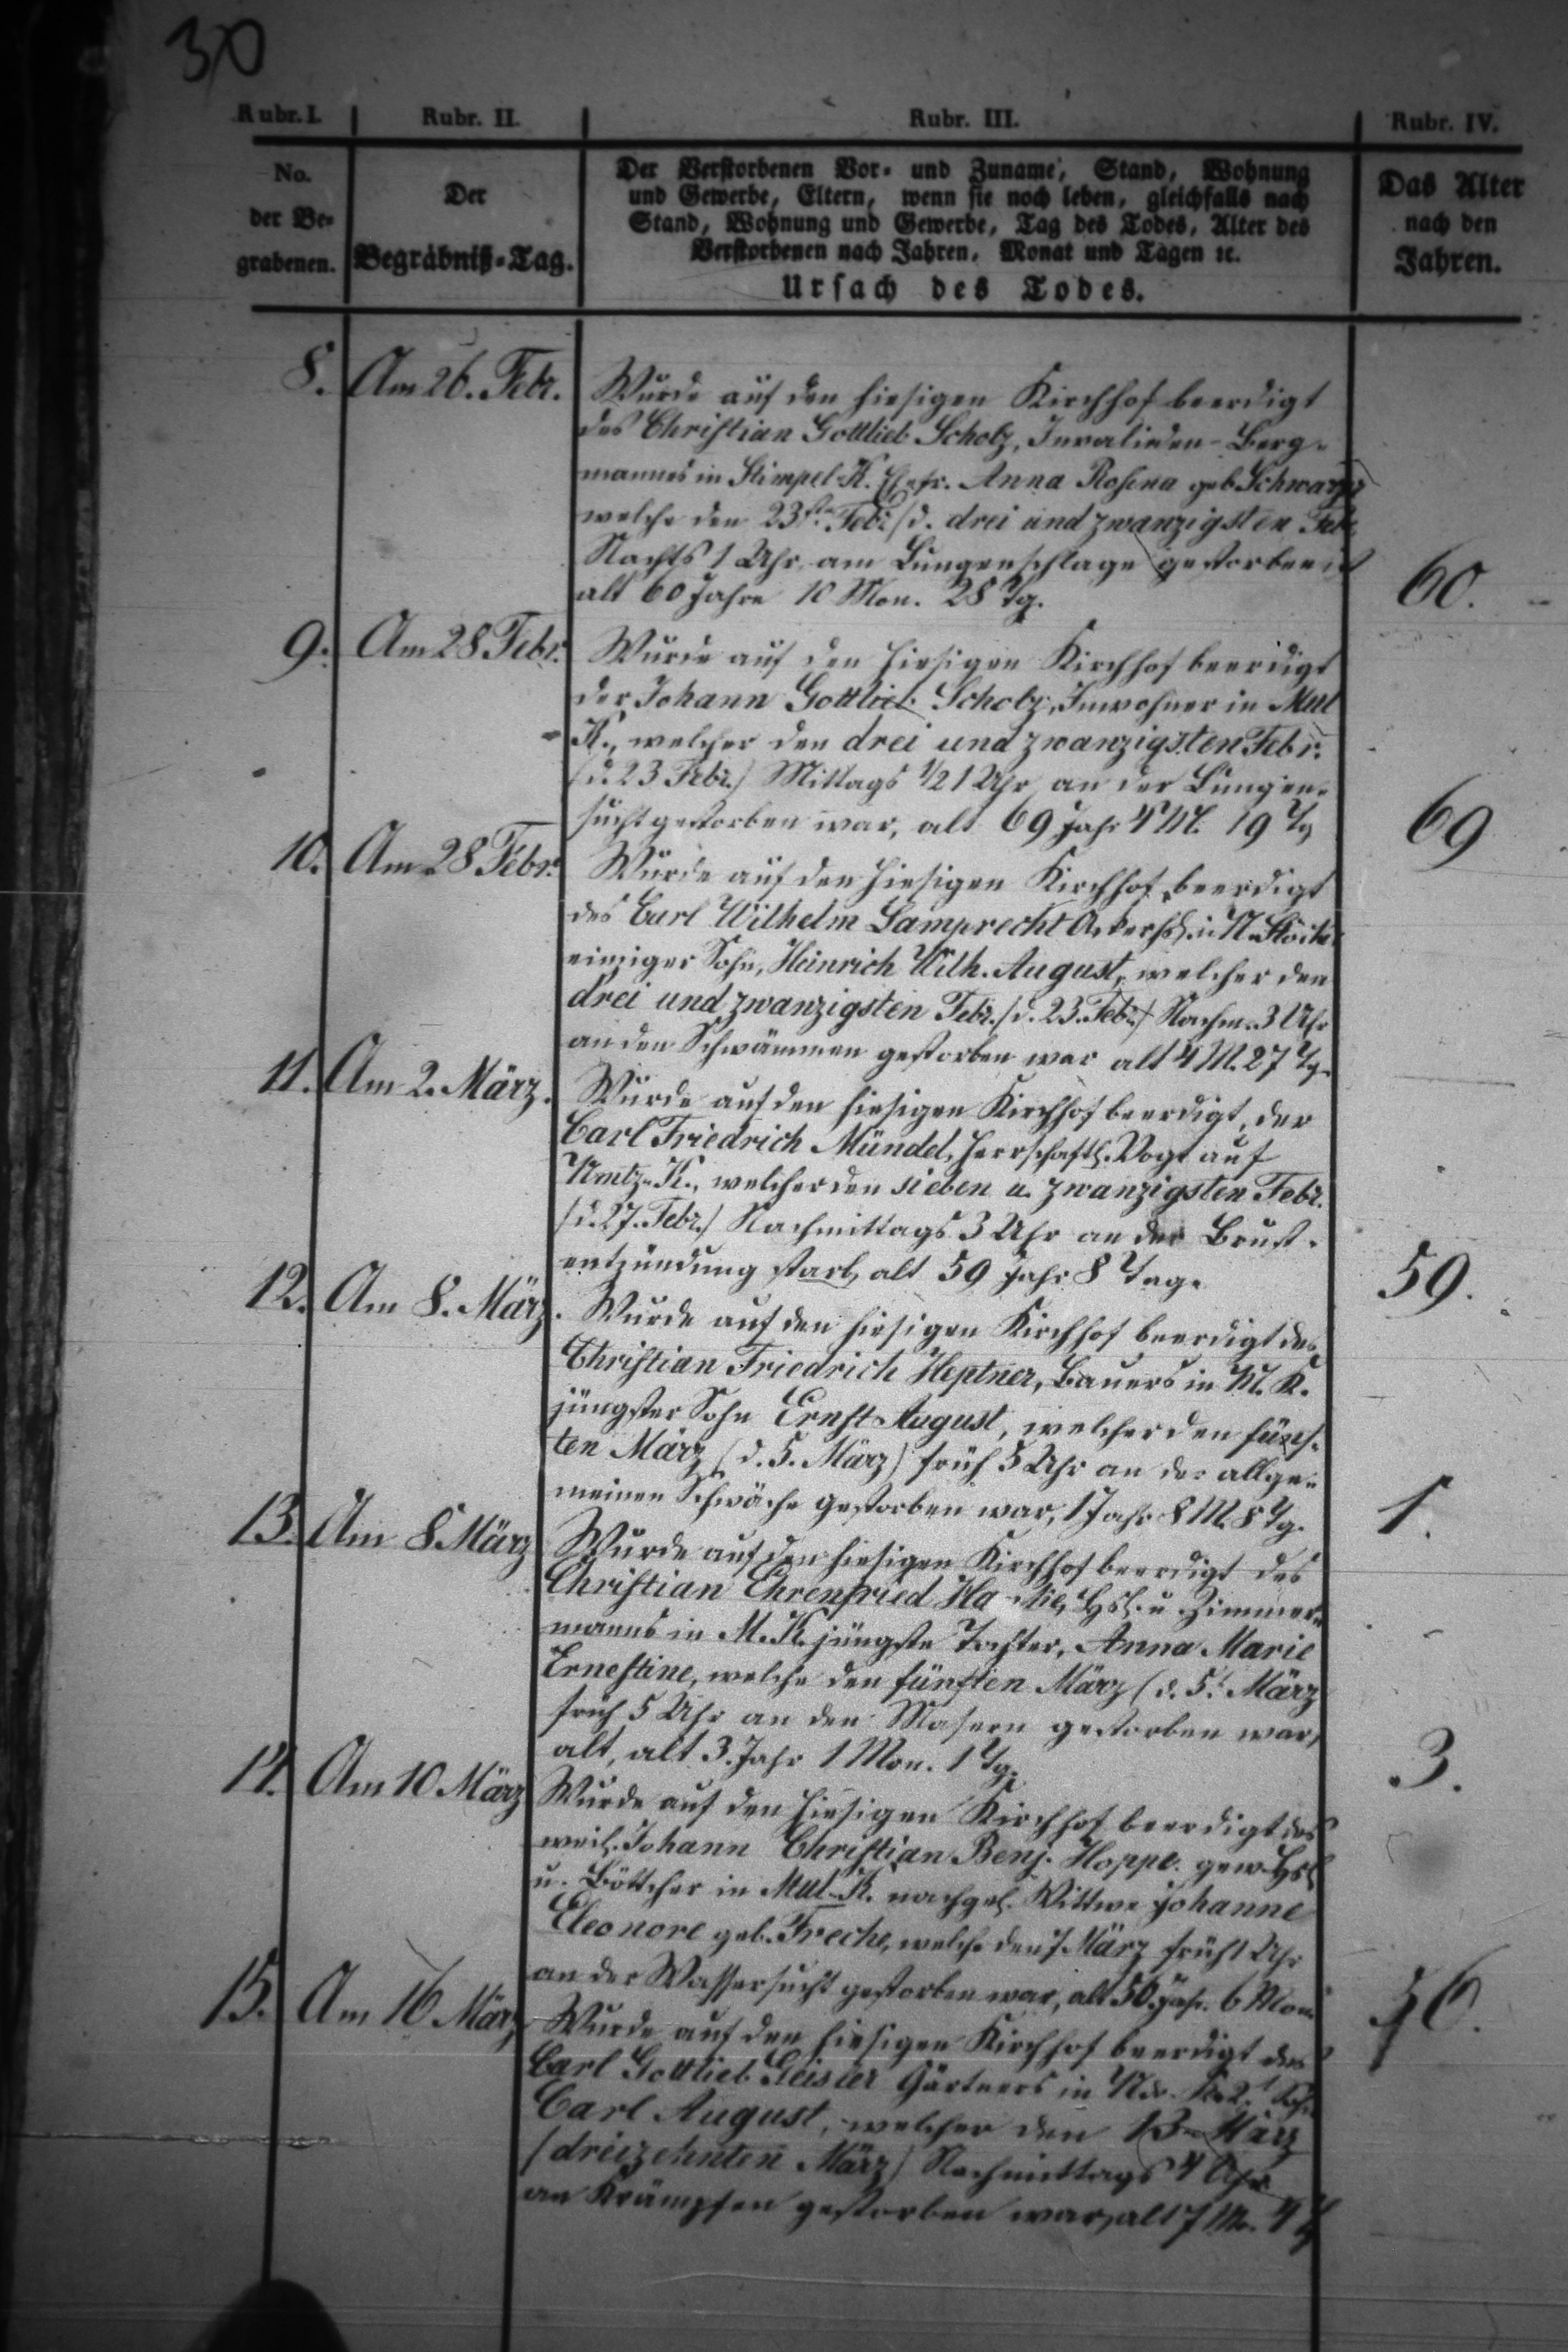 30
Rubr. I. Rubr. II. Rubr. III. Rubr. IV.
No. der Be- grabenen.
Der Begräbniß-Tag.
Der Verstorbenen Vor- und Zuname, Stand, Wohnung
und Gewerbe, Eltern, wenn sie noch leben, gleichfalls nach
Stand, Wohnung und Gewerbe, Tag des Todes, Alter des
Verstorbenen nach Jahren, Monat und Tagen ꝛc.
Ursach des Todes.
Das Alter nach den Jahren.
8. Am 26. Febr. Wurde auf den hiesigen Kirchhof beerdigt
des Christian Gottlieb Scholz, Invaliden-Berg-
mannes in Stimpel-K. Ehefr. Anna Rosina geb. Schwarz
welche den 23st. Febr. (d. drei und zwanzigsten Feb.
Nachts 1 Uhr am Lungenschlage gestorben
alt 60 Jahre 10 Mon. 28 Tg. 60.
9. Am 28 Febr. Wurde auf den hiesigen Kirchhof beerdigt
der Johann Gottlieb Scholz, Inwohner in Mtl
K., welcher den drei und zwanzigsten Febr.
(d. 23 Febr.) Mittags ½1 Uhr an der Lungen-
sucht gestorben war, alt 69 Jahr 4 M. 19 Tg 69
10. Am 28 Febr. Wurde auf den hiesigen Kirchhof beerdigt
des Carl Wilhelm Lamprecht in N.
einziger Sohn, Heinrich Wilh. August, welcher den
drei und zwanzigsten Febr. (d. 23. Febr.) Nachm. 3 Uhr
an den Schwämmen gestorben war alt 4 M. 27 Tg.
11. Am 2. März. Wurde auf den hiesigen Kirchhof beerdigt, der
Carl Friedrich Mündel, herrschaftl. Vogt auf
K., welcher den sieben u. zwanzigsten Febr.
(d. 27. Febr.) Nachmittags 3 Uhr an der Brust-
entzündung starb, alt 59 Jahr 8 Tage 59.
12. Am 8. März. Wurde auf den hiesigen Kirchhof beerdigt des
Christian Friedrich Heptner, Bauers in M. K.
jüngster Sohn Ernst August, welcher den fünf-
ten März (d. 5. März) früh 5 Uhr an der allge-
meinen Schwäche gestorben war, 1 Jahr 8 M. 8 Tg. 1.
13. Am 8 März Wurde auf den hiesigen Kirchhof beerdigt des
Christian Ehrenfried Hsl. u. Zimmer-
manns in M. K. jüngste Tochter, Anna Marie
Ernestine, welche den fünften März (d. 5t. März
früh 5 Uhr an den Masern gestorben war,
alt, alt 3. Jahr 1 Mon. 1 Tg. 3.
14. Am 10 März Wurde auf den hiesigen Kirchhof beerdigt des
weil. Johann Christian Benj. Hoppe. gew. Hsl
u. Böttcher in Mtl-K. nachgel. Wittwe Johanne
Eleonore geb. Freche, welche den 7 März früh 1 Uhr
an der Wassersucht gestorben war, alt 56. Jahr. 6 Mon. 56.
15. Am 16 März Wurde auf den hiesigen Kirchhof beerdigt des
Carl Gottlieb Geisler Gärtners in
Carl August, welcher den 13 März
(dreizehnten März) Nachmittags 4 Uhr
an Krämpfen gestorben war, alt 7 M. 4